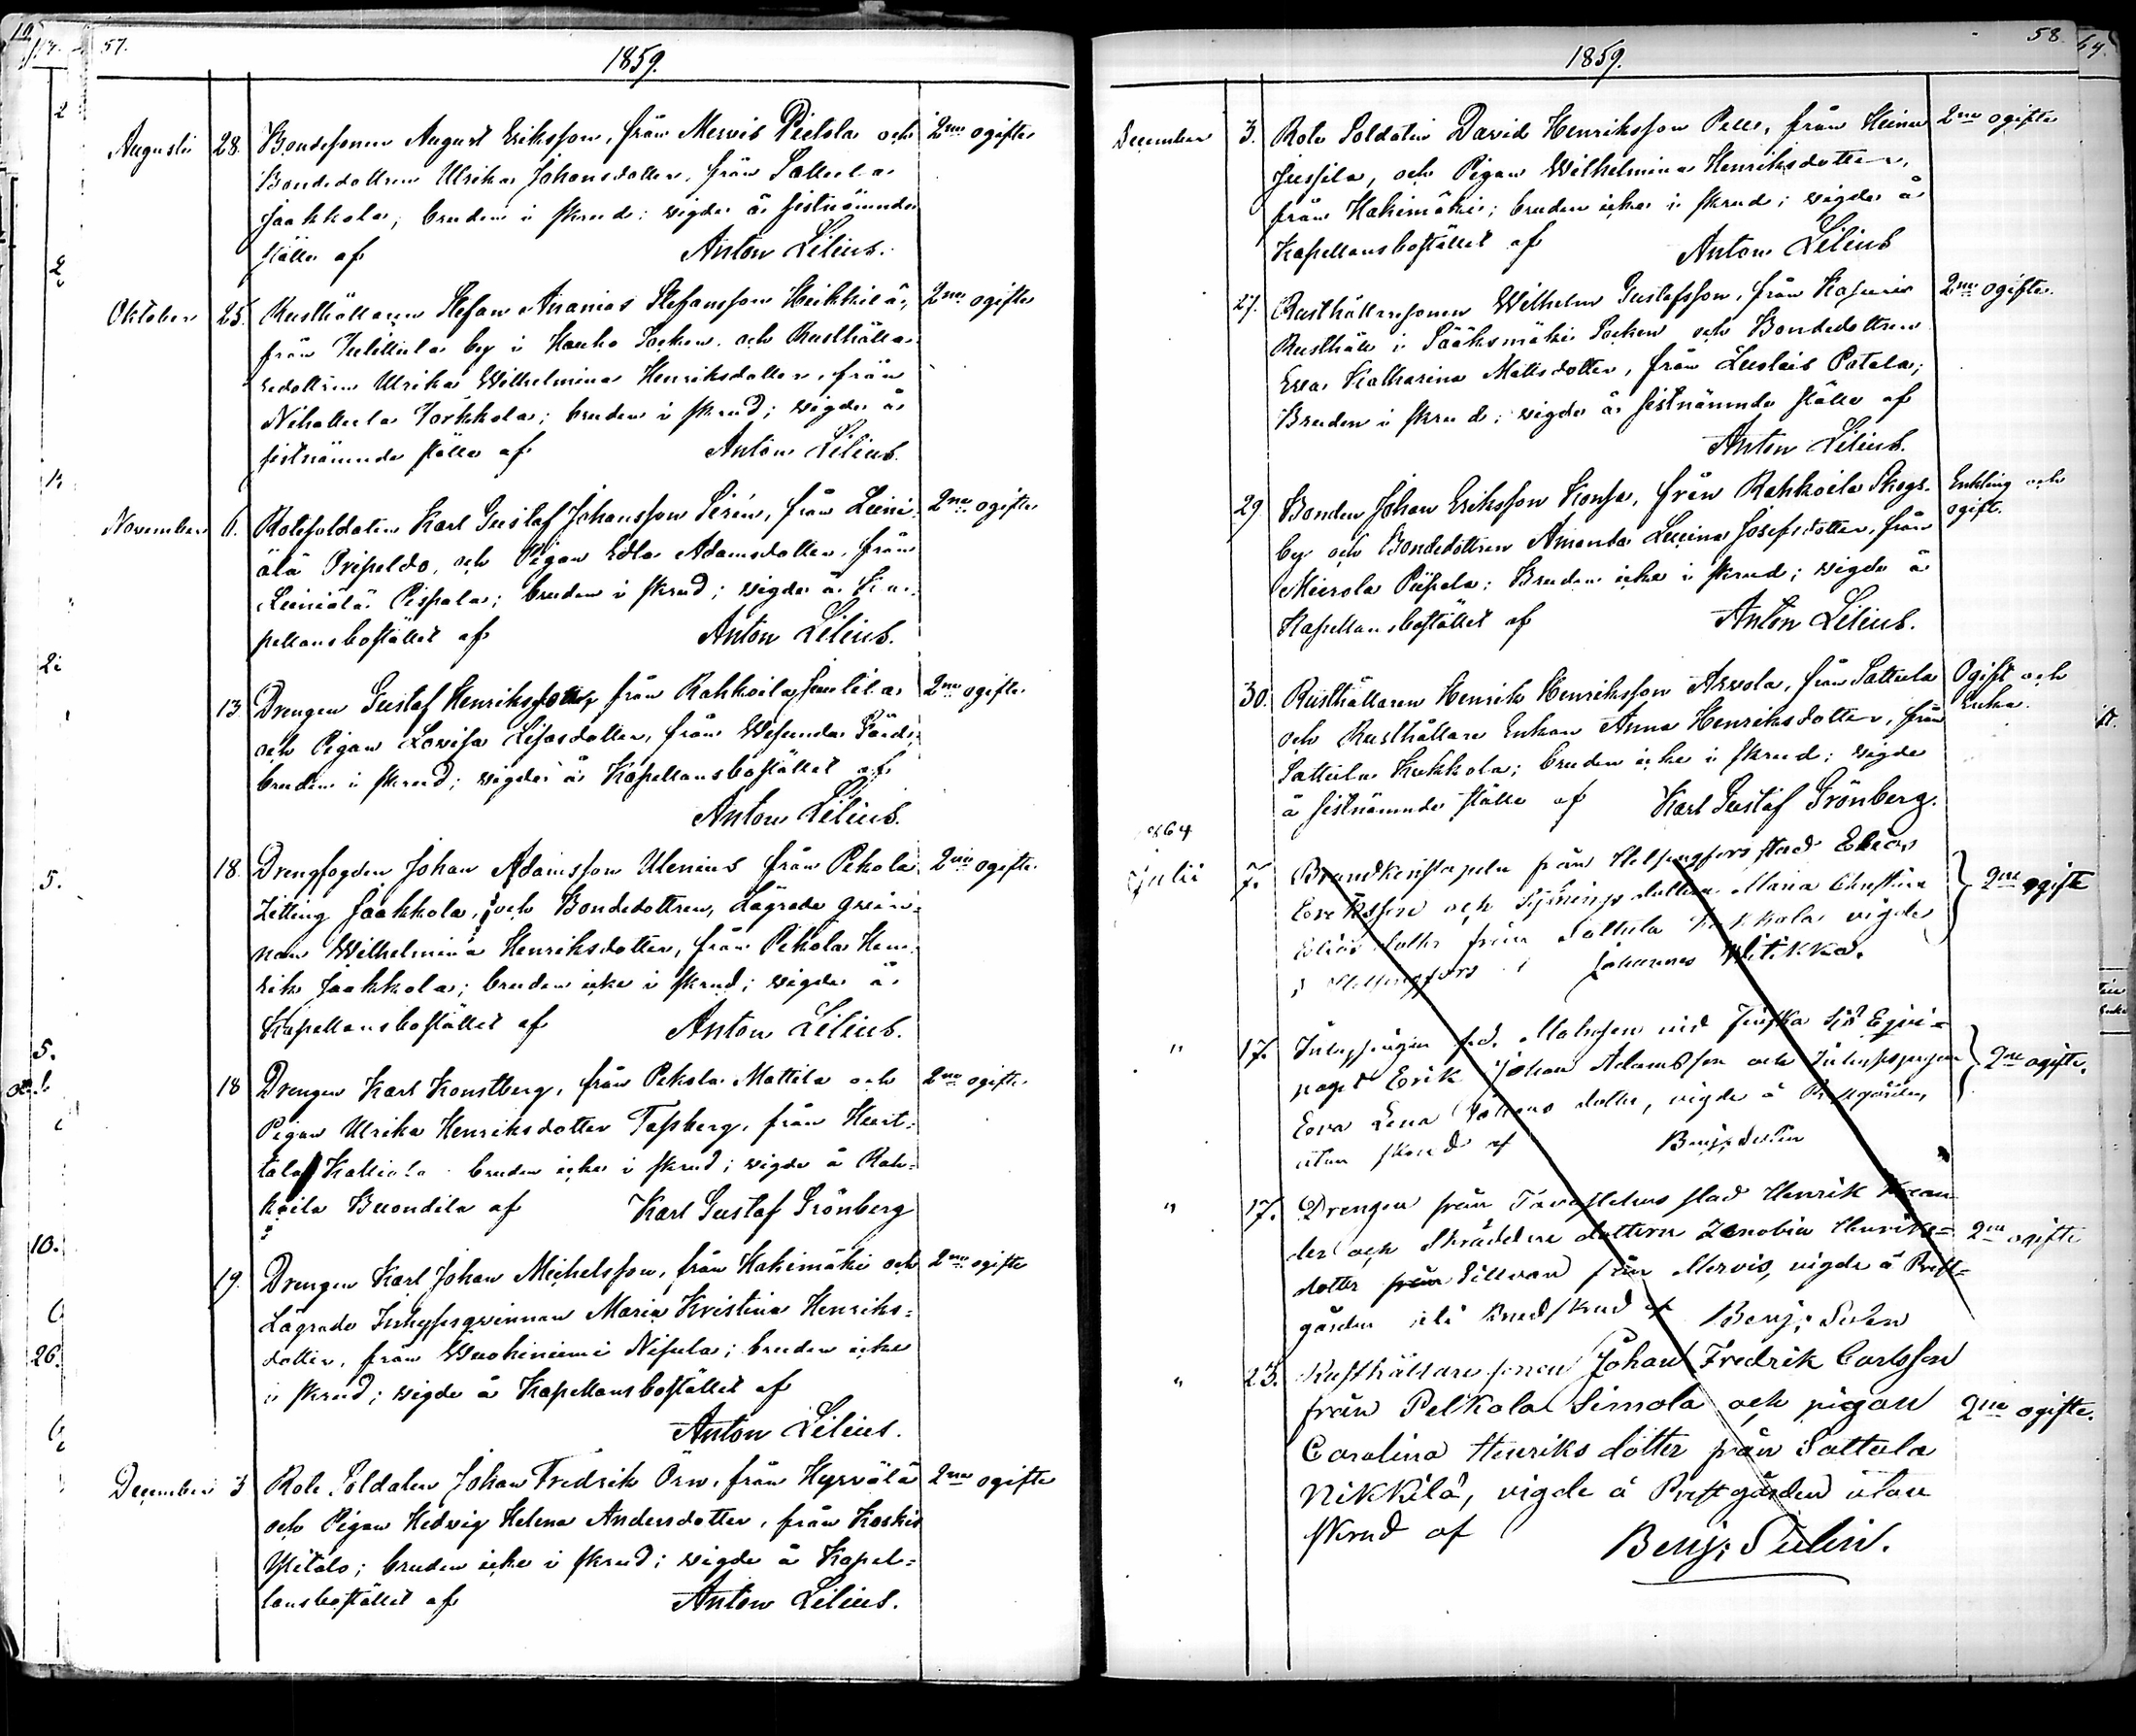 57.
1859.
Augusti 28. Bondesonen August Eriksson, från Mervis Pietola och 2ne ogifte
Bondedottren Ulrika Johansdotter, från Sattula
Jaakkola, bruden i skrud; vigde å sistnämnde
ställe af Anton Lilius.
Oktober 25. Rusthållaren Stefan Ananias Stefansson Heikkilä, 2ne ogifte
från by i Hauho Socken och Rusthålla-
redottren Ulrika Wilhelmina Henriksdotter, från
Nihattula Torkkola; bruden i skrud; vigde å
sistnämnde ställe af Anton Lilius.
November 6. Rotesoldaten Karl Gustaf Johansson Sirén, från Leini- 2ne ogifte
älä och Pigan Edla Adamsdotter, från
Leiniälä Pispala; bruden i skrud; vigde å Ka-
pellansbostället af Anton Lilius.
13. Drengen Gustaf Henriksson från Rahkoila 2ne ogifte
och Pigan Lovisa dotter, från Wesunda
bruden i skrud; vigde å Kapellansbostället af
Anton Lilius.
18. Drengfogden Johan Adamsson Ulenius från Pekola 2ne ogifte
Zitting Jaakkola, och Bondedottren, Lägrade qvin-
nan Wilhelmina Henriksdotter, från Pekola Hen-
rik Jaakkola; bruden icke i skrud; vigde å
Kapellansbostället af Anton Lilius.
18 Drengen Karl Konstberg, från Pekola Mattila och 2ne ogifte
Pigan Ulrika Henriksdotter Tapberg, från Hurt-
tala Kalliola bruden icke i skrud; vigde å Rah-
koila af Karl Gustaf Grönberg
19. Drengen Karl Johan Michelsson, från Hakimäki och 2ne ogifte
Lägrade Inhysesqvinnan Maria Kristina Henriks-
dotter, från Vuohiniemi Nipula; bruden icke
i skrud; vigde å Kapellansbostället af
Anton Lilius.
December 3 Rote Soldaten Johan Fredrik Örn, från Hyrvälä 2ne ogifte
och Pigan Hedvig Helena Andersdotter, från Koskis
Ylitalo; bruden icke i skrud; vigde å Kapel-
lansbostället af Anton Lilius.
58.
1859.
December 3. Rote Soldaten David Henriksson Pelle, från Heinu 2ne ogifte
Jussila, och Pigan Wilhelmina Henriksdotter,
från Hakimäki; bruden icke i skrud; vigde å
Kapellansbostället af Anton Lilius
27. Rusthållaresonen Wilhelm Gustafsson, från 2ne ogifte.
Rusthåll i Sääksmäki Socken och Bondedottren
Eva Katharina Mattsdotter, från Luolais Potala;
Bruden i skrud; vigde å sistnämnde ställe af
Anton Lilius.
29 Bonden Johan Eriksson Konsa, från Rahkoila Skogs- Enkling och
by och Bondedottren Amanda Josefsdotter, från ogift.
Mierola Piipola; Bruden icke i skrud; vigde å
Kapellansbostället af Anton Lilius.
30. Rusthållaren Henrik Henriksson Arvola, från Sattula Ogift och
och Rusthållare Enkan Anna Henriksdotter, från Enka.
Sattula Kukkola; bruden icke i skrud; vigde
å sistnämnde ställe af Karl Gustaf Grönberg.
1864
Julii 7. från Helsingfors stad Elias
Eriksson och dottren Maria Christina 2ne ogifte
Elias dotter från Sattula vigde
i Helsingfors Johannes Witikka.
" 17. vid Finska Sjö Eqvi-
paget Erik Johan Adamsson och 2ne ogifte.
Eva Lena Johans dotter, vigde å Prestgården,
utan skrud af Benj: Sulin
" 17. Drengen från Tavastehus stad Henrik
der och Skräddare dottren Zenobia Henriks- 2ne ogifte
dotter från Mervis, vigde å Prest-
gården skrud af Benj: Sulin
" 23. Rusthållare sonen Johan Fredrik Carlsson
från Pelkola Simola och pigan 2ne ogifte.
Carolina Henriks dotter från Sattula
Nikkilä, vigde å Prestgården utan
skrud af Benj: Sulin.